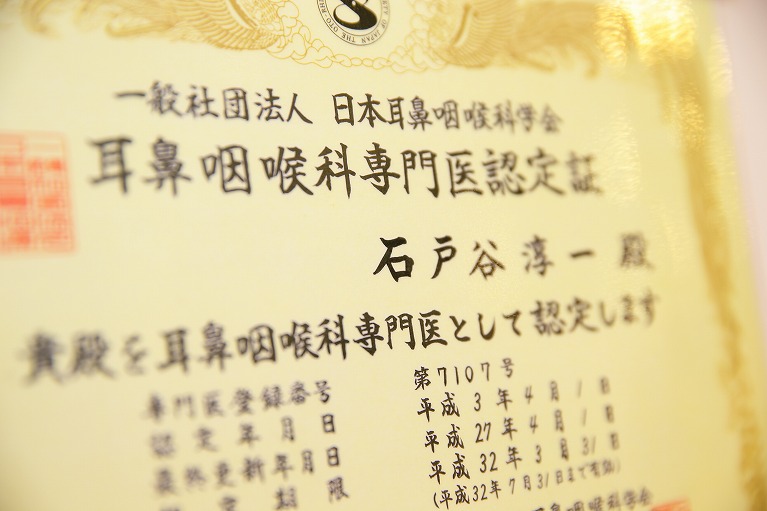 一般社団法人 日本耳鼻咽喉科学会
耳鼻咽喉科専門医認定証
石戸谷淳一 殿
貴殿を耳鼻咽喉科専門医として認定します
専門医登録番号 第7107号
認定年月日 平成3年4月1日
最終更新年月日 平成27年4月1日
認定期限 平成32年3月31日
(平成32年7月31日まで有効)
耳鼻咽喉科学会